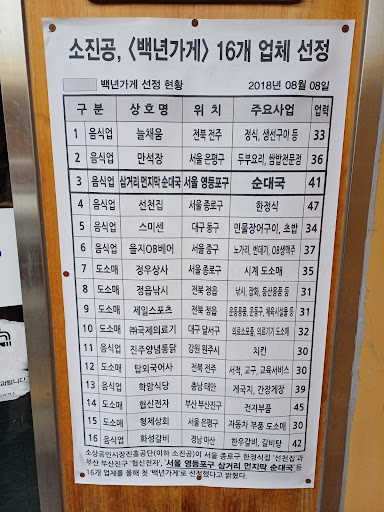 소진공, <백년가게> 16개 업체 선정
백년가게 선정 현황 2018년 08월 08일
구 분 상 호 명 위 치 주요사업 업력
1 음식업 늘채움 전북 전주 정식, 생선구이 등 33
2 음식업 만석장 서울 은평구 두부요리, 쌈밥전문점 36
3 음식업 삼거리 먼지막 순대국 서울 영등포구 순대국 41
4 음식업 선천집 서울 종로구 한정식 47
5 음식업 스미센 대구 동구 민물장어구이, 초밥 34
6 음식업 을지OB베어 서울 중구 노가리, 번데기, OB생맥주 37
7 도소매 정우상사 서울 종로구 시계 도소매 35
8 도소매 정읍낚시 전북 정읍 낚시, 잡화, 등산용품 등 31
9 도소매 제일스포츠 전북 정읍 운동용품, 운동구, 체육시설물 등 31
10 도소매 ㈜국제의료기 대구 달서구 의료소모품, 의료기기 도소매 32
11 음식업 진주양념통닭 강원 원주시 치킨 30
12 도소매 탑외국어사 전북 전주 서적, 교구, 교육서비스 30
13 음식업 학암식당 충남 태안 게국지, 간장게장 39
14 도소매 협신전자 부산 부산진구 전자부품 45
15 도소매 형제상회 서울 은평구 자동차 부품 도소매 30
16 음식업 화성갈비 경남 마산 한우갈비, 갈비탕 42
소상공인시장진흥공단(이하 소진공)이 서울 종로구 한정식집 '선천집'과
부산 부산진구 '협신전자', '서울 영등포구 삼거리 먼지막 순대국'등
16개 업체를 올해 첫 '백년가게'로 선정했다고 밝혔다.